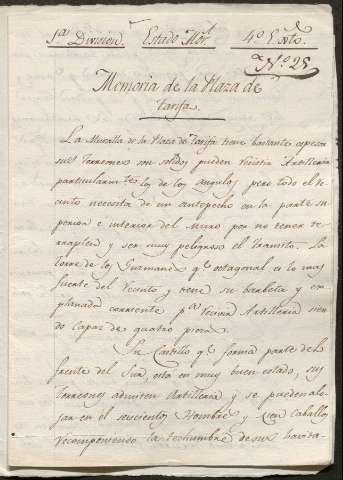 1.ª Division. Estado Mor. 4.º Exto.
N.º 25
Memoria de la Plaza de
tarifa.
La Muralla de la Plaza de tarifa tiene bastante espesor
sus torreones son solidos pueden resistir Artilleria
particularm.te los de los angulos pero todo el re-
cinto necesita de un antepecho en la parte su-
perior e interior del muro por no tener te-
rraplen y ser muy peligroso el transito. La
torre de los Guzmanes q.e octagonal es lo mas
fuerte del recinto y tiene su barbeta y ex-
planada corriente p.a recivir Artilleria sien-
do capaz de quatro piezas.
Su Castillo q.e forma parte del
frente del Sur, esta en muy buen estado, sus
Torreones admiten Artilleria y se pueden alo-
jar en el seiscientos Hombres y cien Caballos
recomponiendo la techumbre de sus havita-